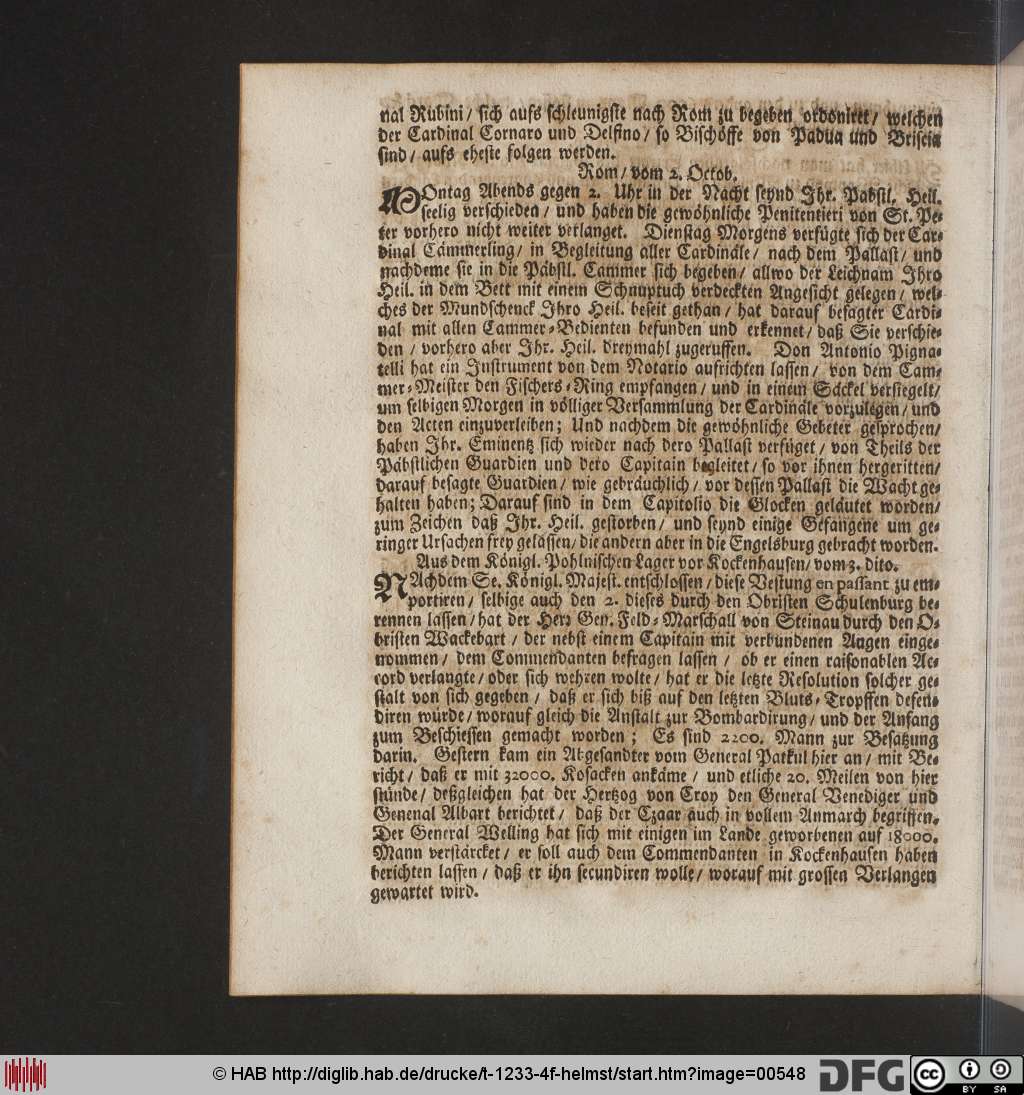 nal Rubini / sich aufs schleunigste nach Rom zu begeben ordoniret / welchen
der Cardinal Cornaro und Delfino / so Bischöffe von Padua und Briscia
sind / aufs eheste folgen werden.
Rom / vom 2. Octob.
MOntag Abends gegen 2. Uhr in der Nacht seynd Ihr. Pabstl. Heil.
seelig verschieden / und haben die gewöhnliche Penitentieri von St. Pe-
ter vorhero nicht weiter verlanget. Dienstag Morgens verfügte sich der Car-
dinal Cämmerling / in Begleitung aller Cardinäle / nach dem Pallast / und
nachdeme sie in die Päbstl. Cammer sich begeben / allwo der Leichnam Ihro
Heil. in dem Bett mit einem Schnuptuch verdeckten Angesicht gelegen / wel-
ches der Mundschenck Ihro Heil. beseit gethan / hat darauf besagter Cardi-
nal mit allen Cammer-Bedienten befunden und erkennet / daß Sie verschie-
den / vorhero aber Ihr. Heil. dreymahl zugeruffen. Don Antonio Pigna-
telli hat ein Instrument von dem Notario aufrichten lassen / von dem Cam-
mer-Meister den Fischers-Ring empfangen / und in einem Säckel versiegelt /
um selbigen Morgen in völliger Versammlung der Cardinäle vorzulegen / und
den Acten einzuverleiben; Und nachdem die gewöhnliche Gebeter gesprochen /
haben Ihr. Eminentz sich wieder nach dero Pallast verfüget / von Theils der
Päbstlichen Guardien und dero Capitain begleitet / so vor ihnen hergeritten /
darauf besagte Guardien / wie gebräuchlich / vor dessen Pallast die Wacht ge-
halten haben; Darauf sind in dem Capitolio die Glocken geläutet worden /
zum Zeichen daß Ihr. Heil. gestorben / und seynd einige Gefangene um ge-
ringer Ursachen frey gelassen / die andern aber in die Engelsburg gebracht worden.
Aus dem Königl. Pohlnischen Lager vor Kockenhausen / vom 3. dito.
NAchdem Se. Königl. Majest. entschlossen / diese Vestung en passant zu em-
portiren / selbige auch den 2. dieses durch den Obristen Schulenburg be-
rennen lassen / hat der Herr Gen. Feld-Marschall von Steinau durch den O-
bristen Wackebart / der nebst einem Capitain mit verbundenen Augen einge-
nommen / dem Commendanten befragen lassen / ob er einen raisonablen Ac-
cord verlangte / oder sich wehren wolte / hat er die letzte Resolution solcher ge-
stalt von sich gegeben / daß er sich biß auf den letzten Bluts-Tropffen defen-
diren würde / worauf gleich die Anstalt zur Bombardirung / und der Anfang
zum Beschiessen gemacht worden; Es sind 2200. Mann zur Besatzung
darin. Gestern kam ein Abgesandter vom General Patkul hier an / mit Be-
richt / daß er mit 32000. Kosacken ankäme / und etliche 20. Meilen von hier
stünde / deßgleichen hat der Hertzog von Croy den General Venediger und
Genenal Albart berichtet / daß der Czaar auch in vollem Anmarch begriffen.
Der General Welling hat sich mit einigen im Lande geworbenen auf 18000.
Mann verstärcket / er soll auch dem Commendanten in Kockenhausen haben
berichten lassen / daß er ihn secundiren wolle / worauf mit grossen Verlangen
gewartet wird.
© HAB http://diglib.hab.de/drucke/t-1233-4f-helmst/start.htm?image=00548
DFG
cc BY SA